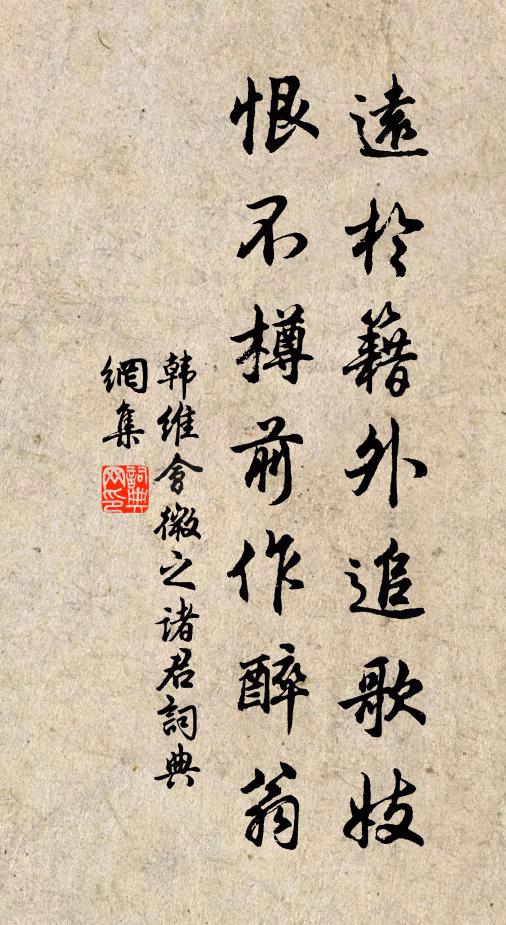 遠於籍外追歌妓
恨不樽前作醉翁
韩維會微之诸君詞典
網集
詞典網印